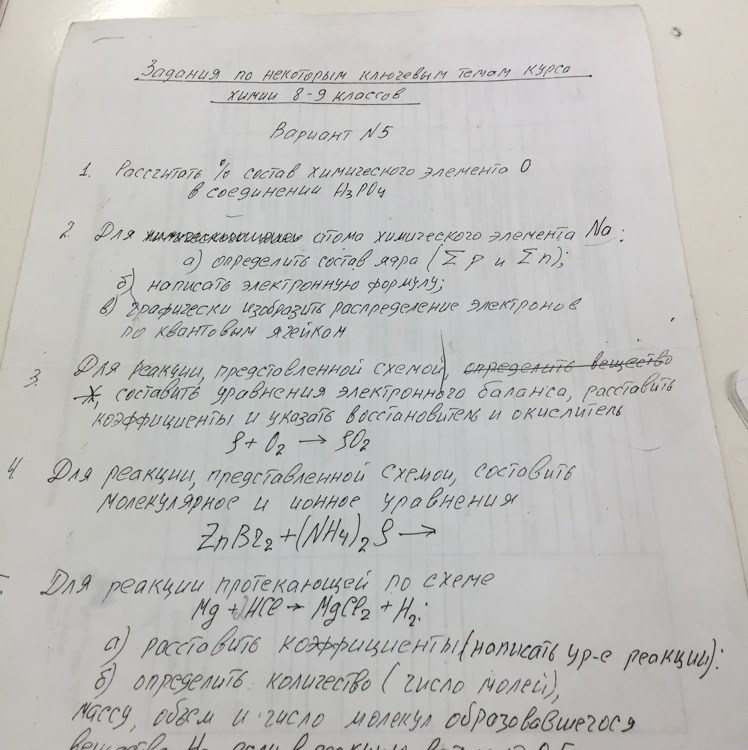 Задания по некоторым ключевым темам курса
химии 8-9 классов
Вариант N5
1. Рассчитать % состав химического элемента O
в соединении H₃PO₄
2. Для атома химического элемента Na:
а) определить состав ядра (Σp и Σn);
б) написать электронную формулу;
в) графически изобразить распределение электронов
по квантовым ячейкам
3. Для реакции, представленной схемой, определить вещество
X, составить уравнения электронного баланса, расставить
коэффициенты и указать восстановитель и окислитель
S + O₂ → SO₂
4. Для реакции, представленной схемой, составить
молекулярное и ионное уравнения
ZnBr₂ + (NH₄)₂S →
Для реакции протекающей по схеме
Mg + HCl → MgCl₂ + H₂:
а) расставить коэффициенты (написать ур-е реакции):
б) определить количество (число молей),
массу, объем и число молекул образовавшегося
вещества H₂, если в реакцию